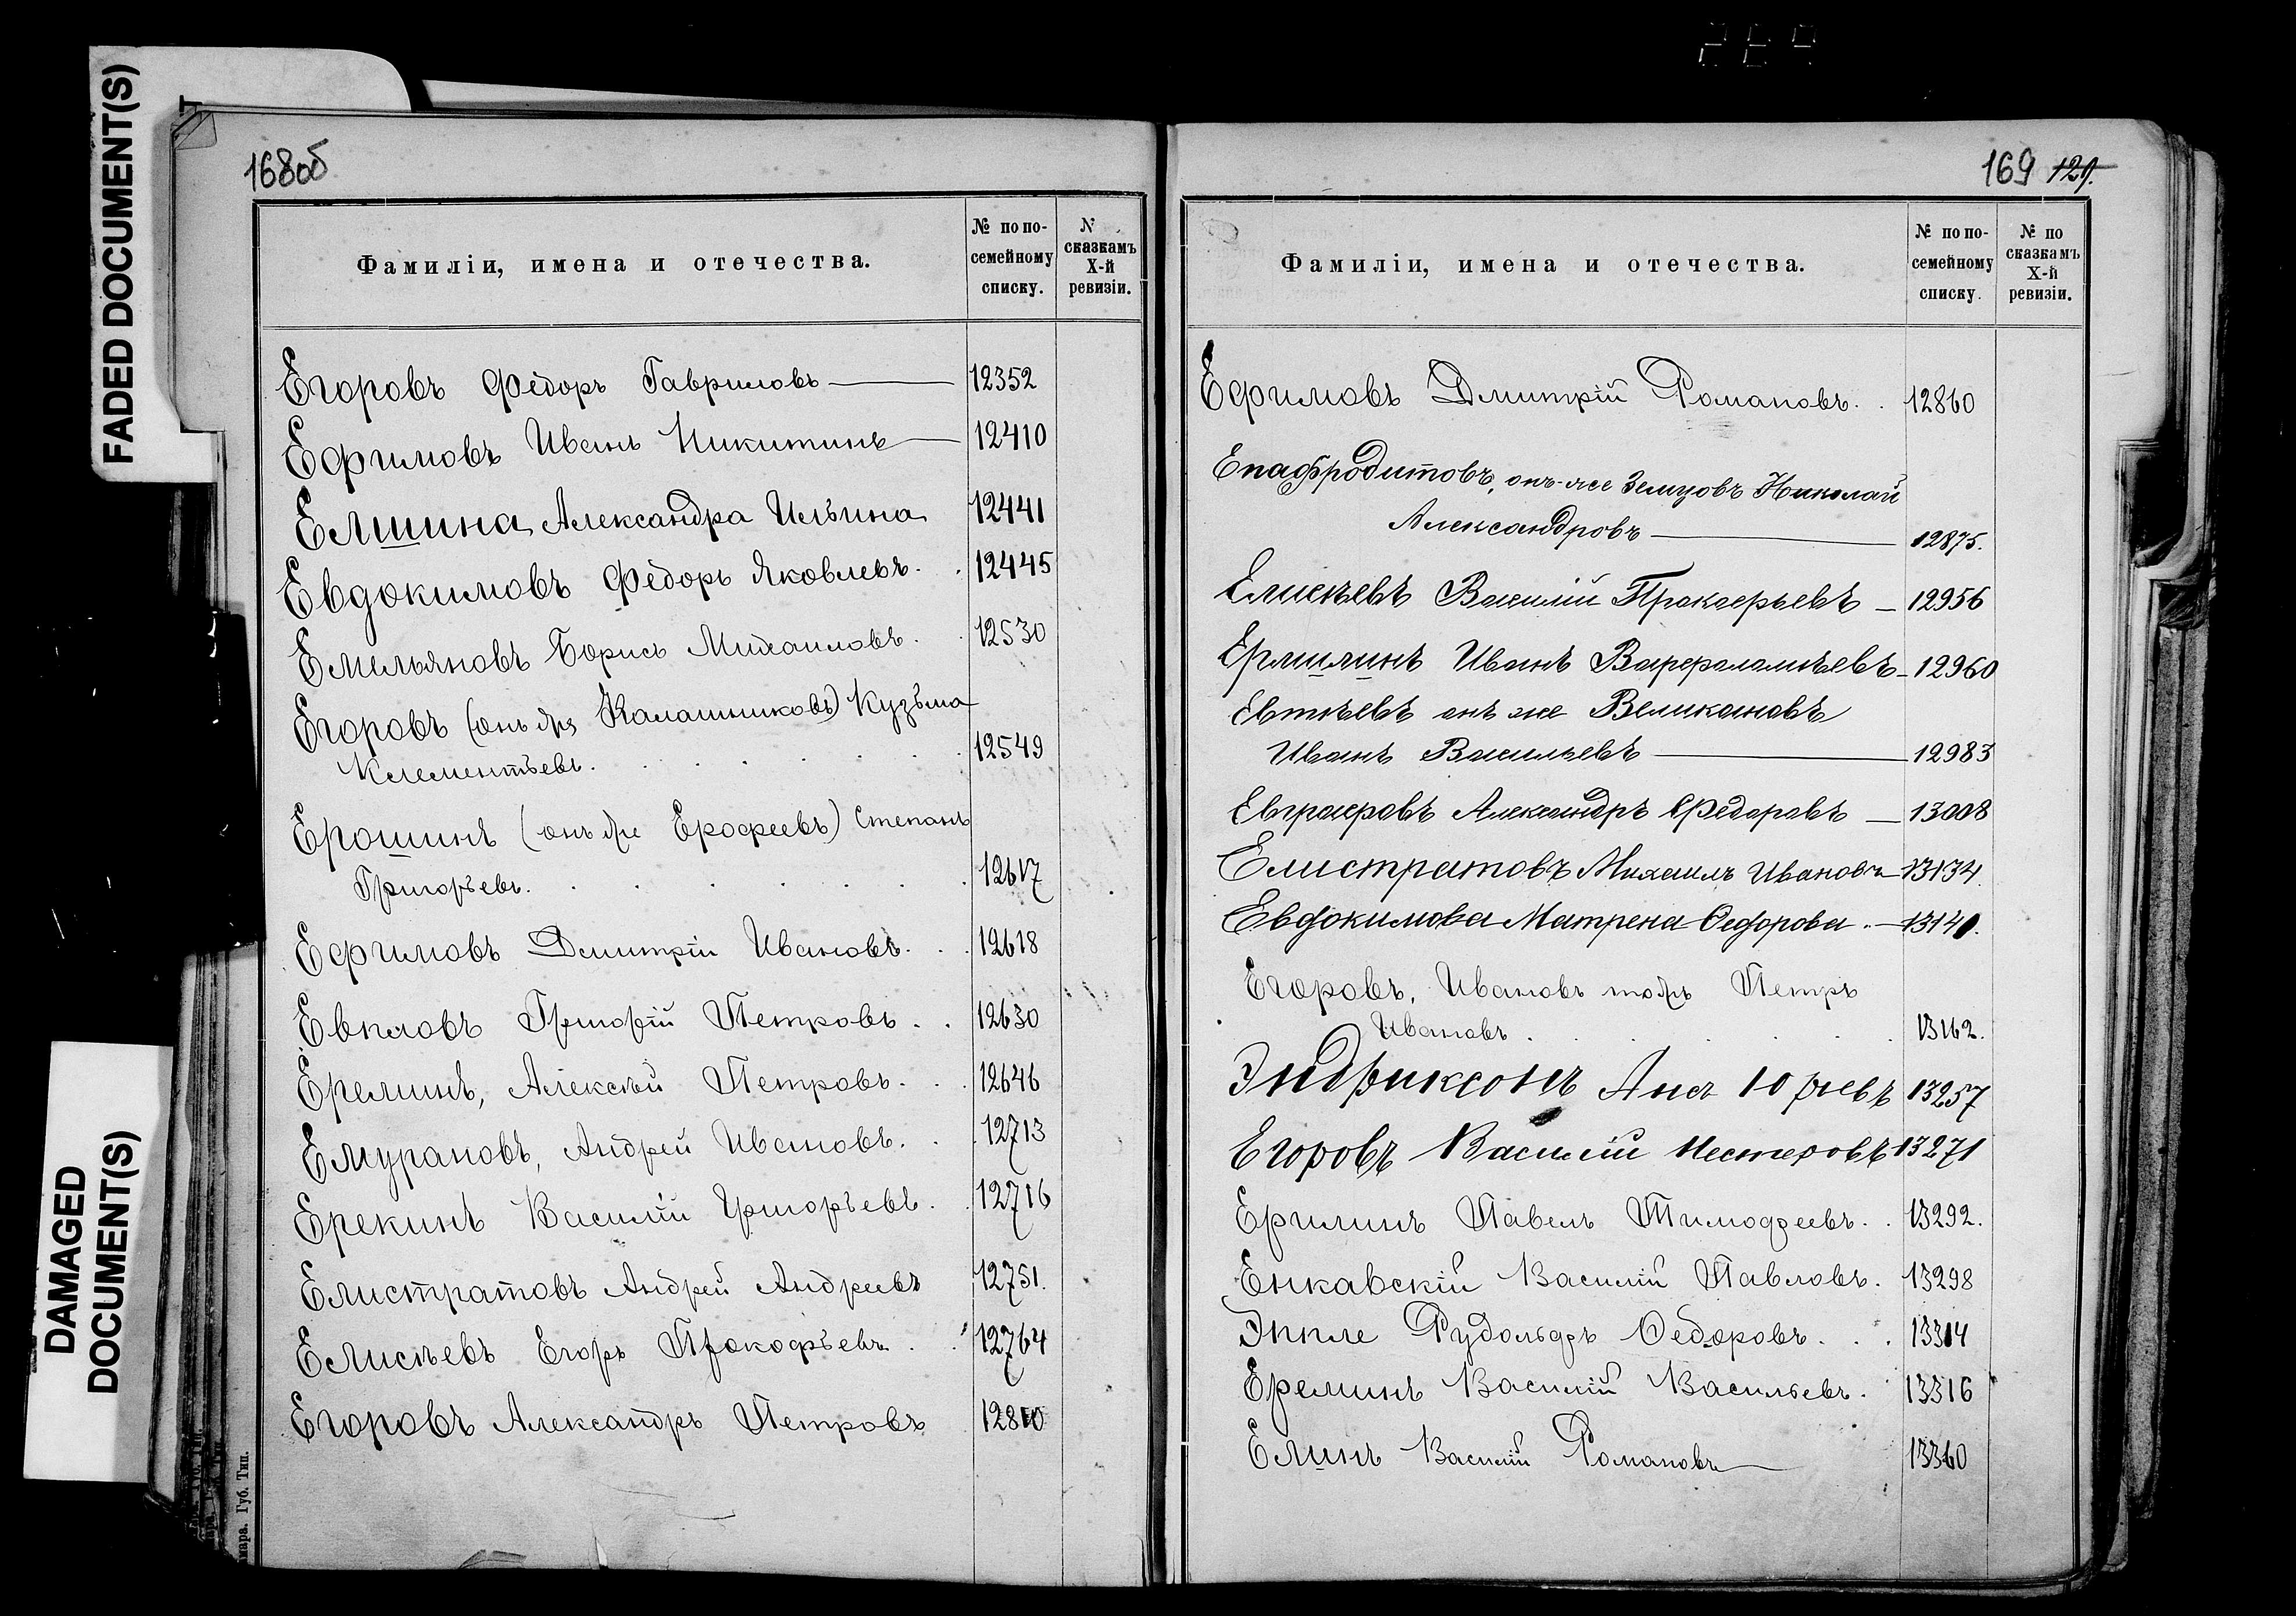 FADED DOCUMENT(S)
DAMAGED
DOCUMENT(S)
168об
Фамиліи, имена и отечества.
№ по по-
семейному
списку.
№
сказкамъ
X-й
ревизіи.
Егоровъ Федоръ Гавриловъ 12352
Ефимовъ Иванъ Никитинъ 12410
Елшина Александра Ильина 12441
Евдокимовъ Федоръ Яковлевъ. 12445
Емельяновъ Борисъ Михаиловъ. 12530
Егоровъ (онъ же Калашниковъ) Кузьма
Клементьевъ. 12549
Ерошинъ (онъ же Ерофеевъ) Степанъ
Григорьевъ. 12617
Ефимовъ Дмитрій Ивановъ. 12618
Евпловъ Григорій Петровъ. 12630
Еремпинъ, Алексѣй Петровъ. 12646
Емурановъ, Андрей Ивановъ. 12713
Ерекинъ Василій Григорьевъ. 12716
Елистратовъ Андрей Андреевъ 12751.
Елисѣевъ Егоръ Прокофьевъ. 12764
Егоровъ Александръ Петровъ 12810
Самара. Губ. Тип.
169 129.
Фамиліи, имена и отечества.
№ по по-
семейному
списку.
№ по
сказкамъ
X-й
ревизіи.
Ефимовъ Дмитрій Романовъ. 12860
Епафродитовъ, онъ-же Земцовъ Николай
Александровъ 12875.
Елисѣевъ Василій Прокофьевъ 12956
Ермилинъ Иванъ Варфоломѣевъ 12960
Евтѣевъ онъ же Великановъ
Иванъ Васильевъ 12983
Евграфовъ Александръ Федоровъ 13008
Елистратовъ Михаилъ Ивановъ 13134.
Евдокимова Матрена Федорова. 13140.
Егоровъ, Ивановъ тожъ Петръ
Ивановъ. 13162.
Эндриксонъ Ансъ Юрьевъ 13257
Егоровъ Василій Нестеровъ 13271
Ерилинъ Павелъ Тимофеевъ. 13292.
Енкавскій Василій Павловъ. 13298
Эппле Рудольфъ Федоровъ. 13314
Ереминъ Василій Васильевъ. 13316
Елинъ Василій Романовъ 13360